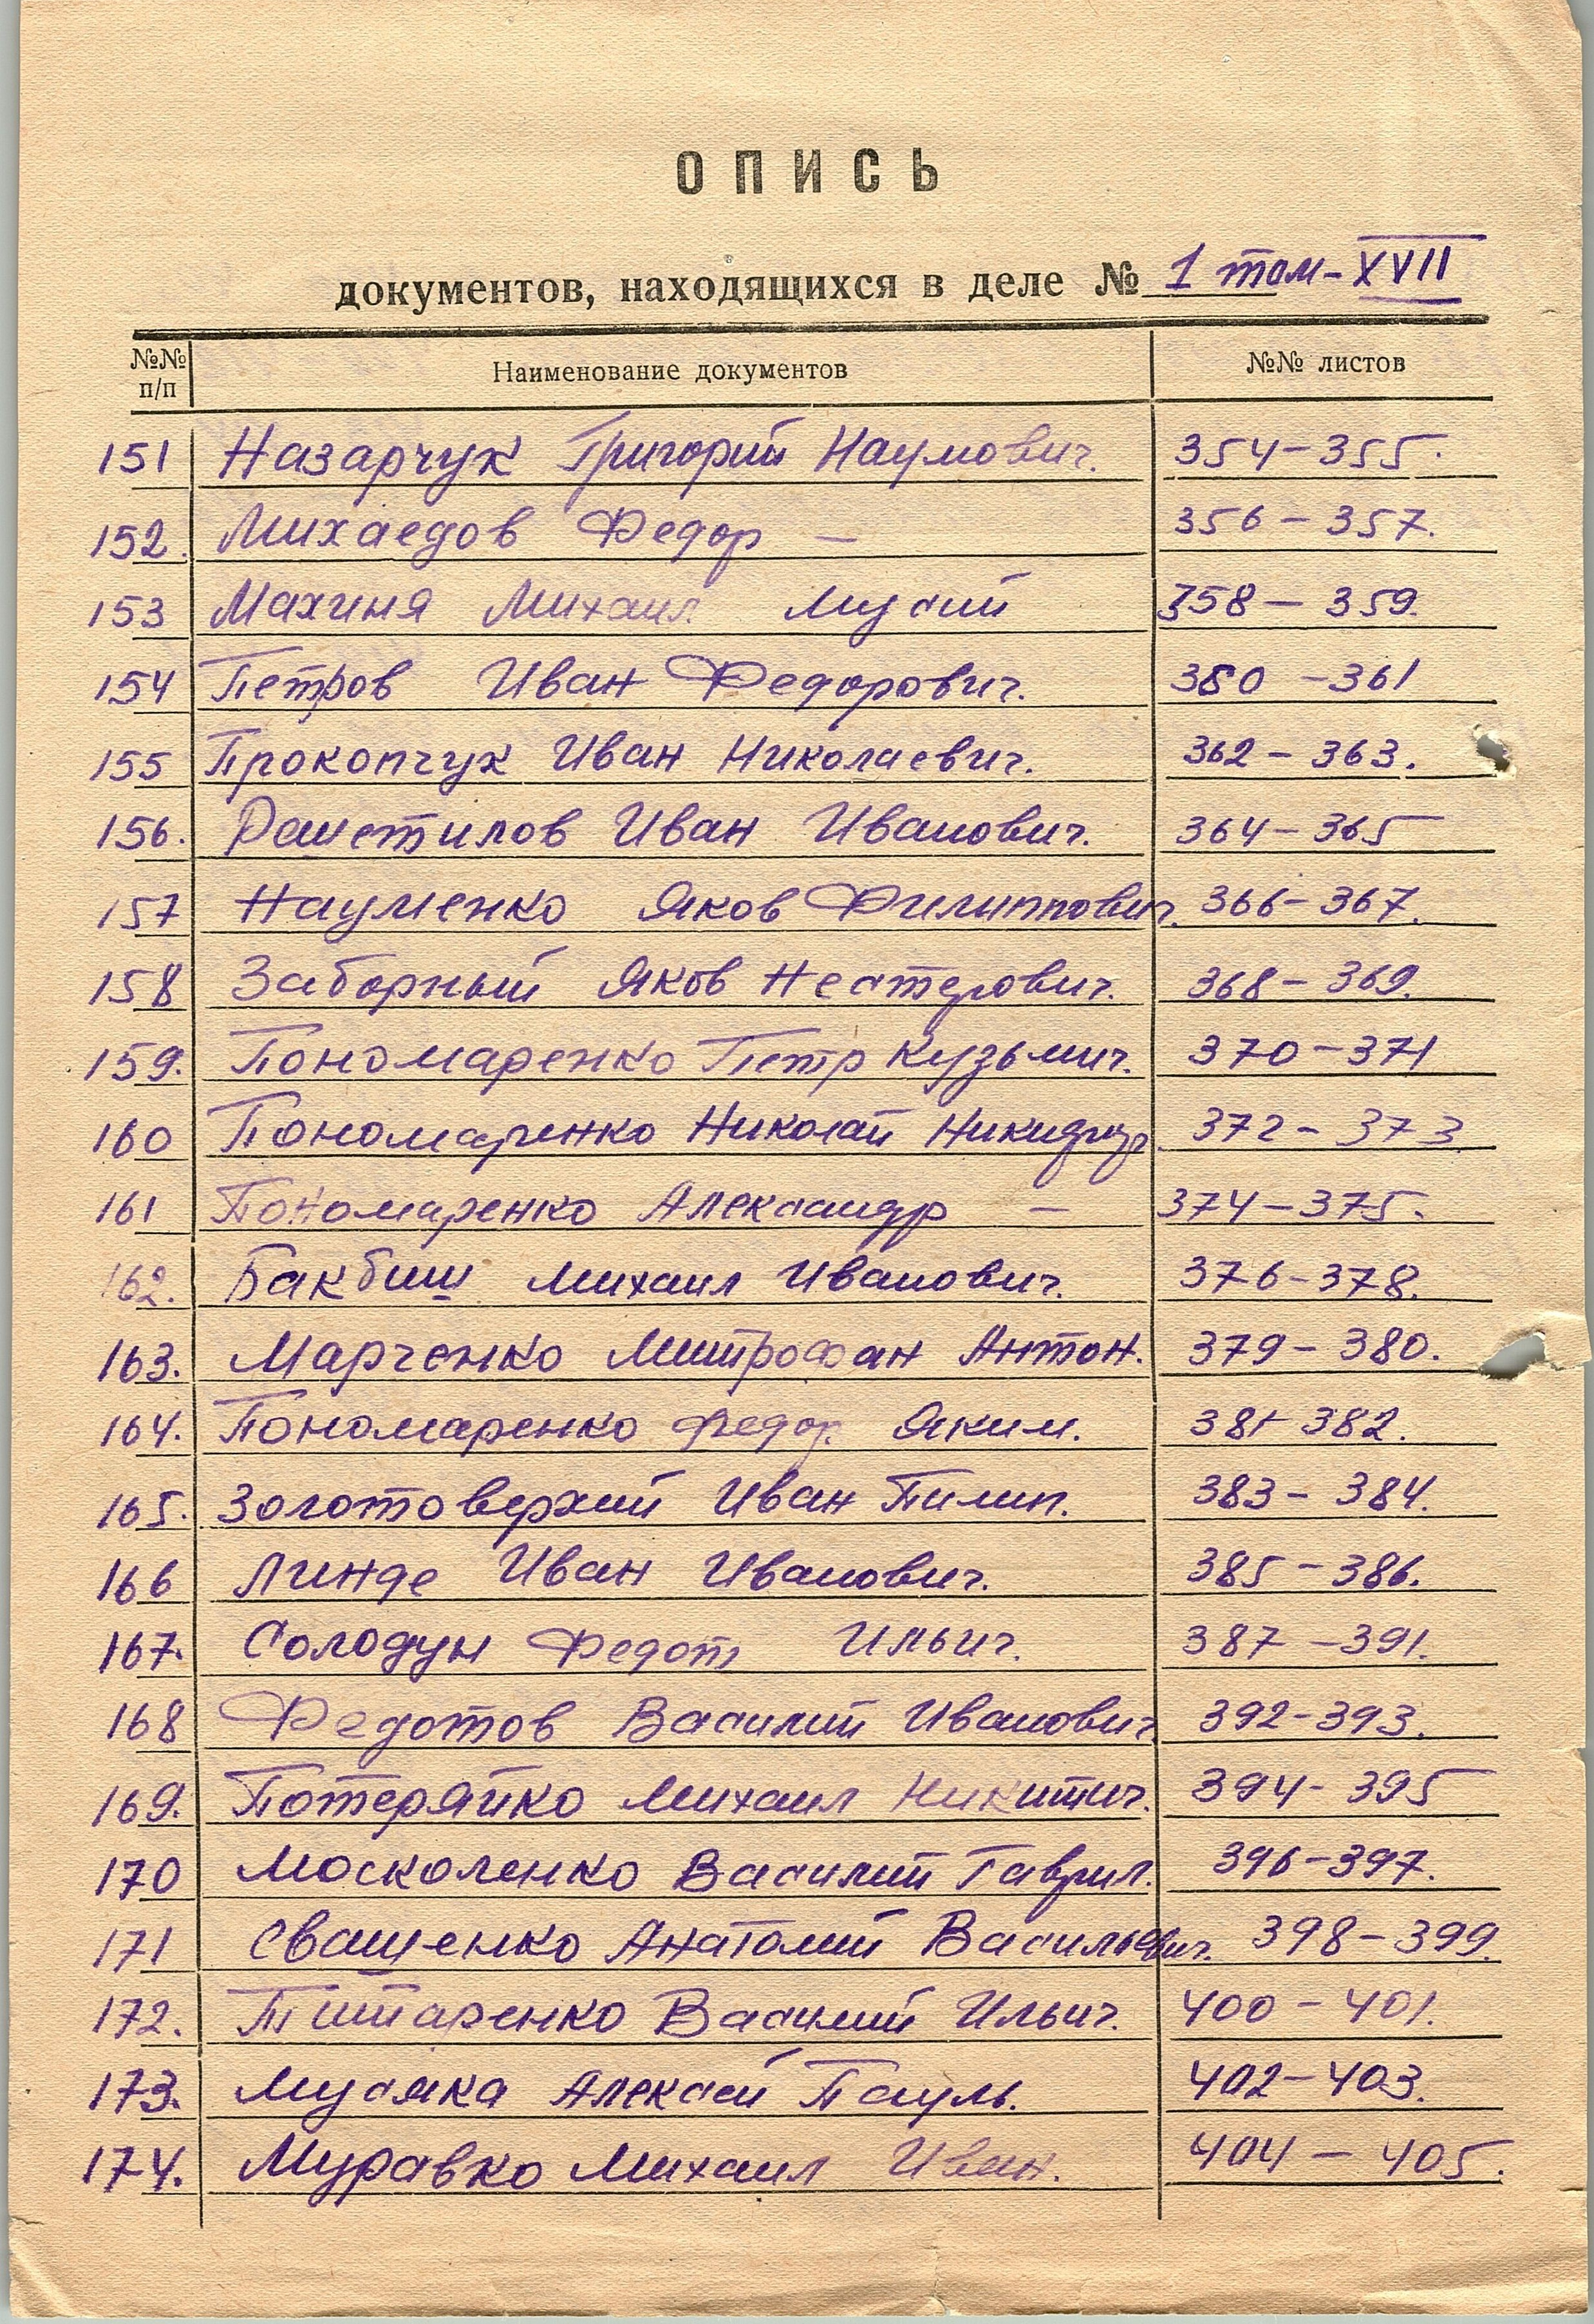 ОПИСЬ
документов, находящихся в деле № 1 том-XVII
№№ п/п Наименование документов №№ листов
151 Назарчук Григорий Наумович. 354-355.
152. Михаедов Федор — 356-357.
153 Махиня Михаил Мусий 358-359.
154 Петров Иван Федорович. 360-361
155 Прокопчук Иван Николаевич. 362-363.
156. Иван Иванович. 364-365
157 Науменко Яков Филиппович. 366-367.
158 Заборный Яков Нестерович. 368-369.
159. Пономаренко Петр Кузьмич. 370-371
160 Пономаренко Николай 372-373
161 Пономаренко Александр — 374-375.
162. Бакбиш Михаил Иванович. 376-378.
163. Марченко Митрофан Антон. 379-380.
164. Пономаренко Федор. Яким. 381-382.
165. Золотоверхий Иван Пилип. 383-384.
166 Линде Иван Иванович. 385-386.
167. Солодун Федот Ильич. 387-391.
168 Федотов Василий Иванович 392-393.
169. Потеряйко Михаил Никитич. 394-395
170 Москоленко Василий Гаврил. 396-397.
171 Сващенко Анатолий Васильевич. 398-399.
172. Титаренко Василий Ильич. 400-401.
173. Мусяка Алексей Пауль. 402-403.
174. Муравко Михаил Иван. 404-405.